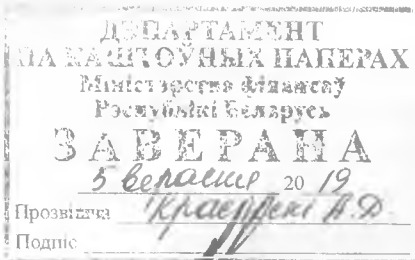 ДЭПАРТАМЕНТ
ПА КАШТОЎНЫХ ПАПЕРАХ
Міністэрства фінансаў
Рэспублікі Беларусь
ЗАВЕРАНА
5 верасня 20 19
Прозвішча
Подпіс